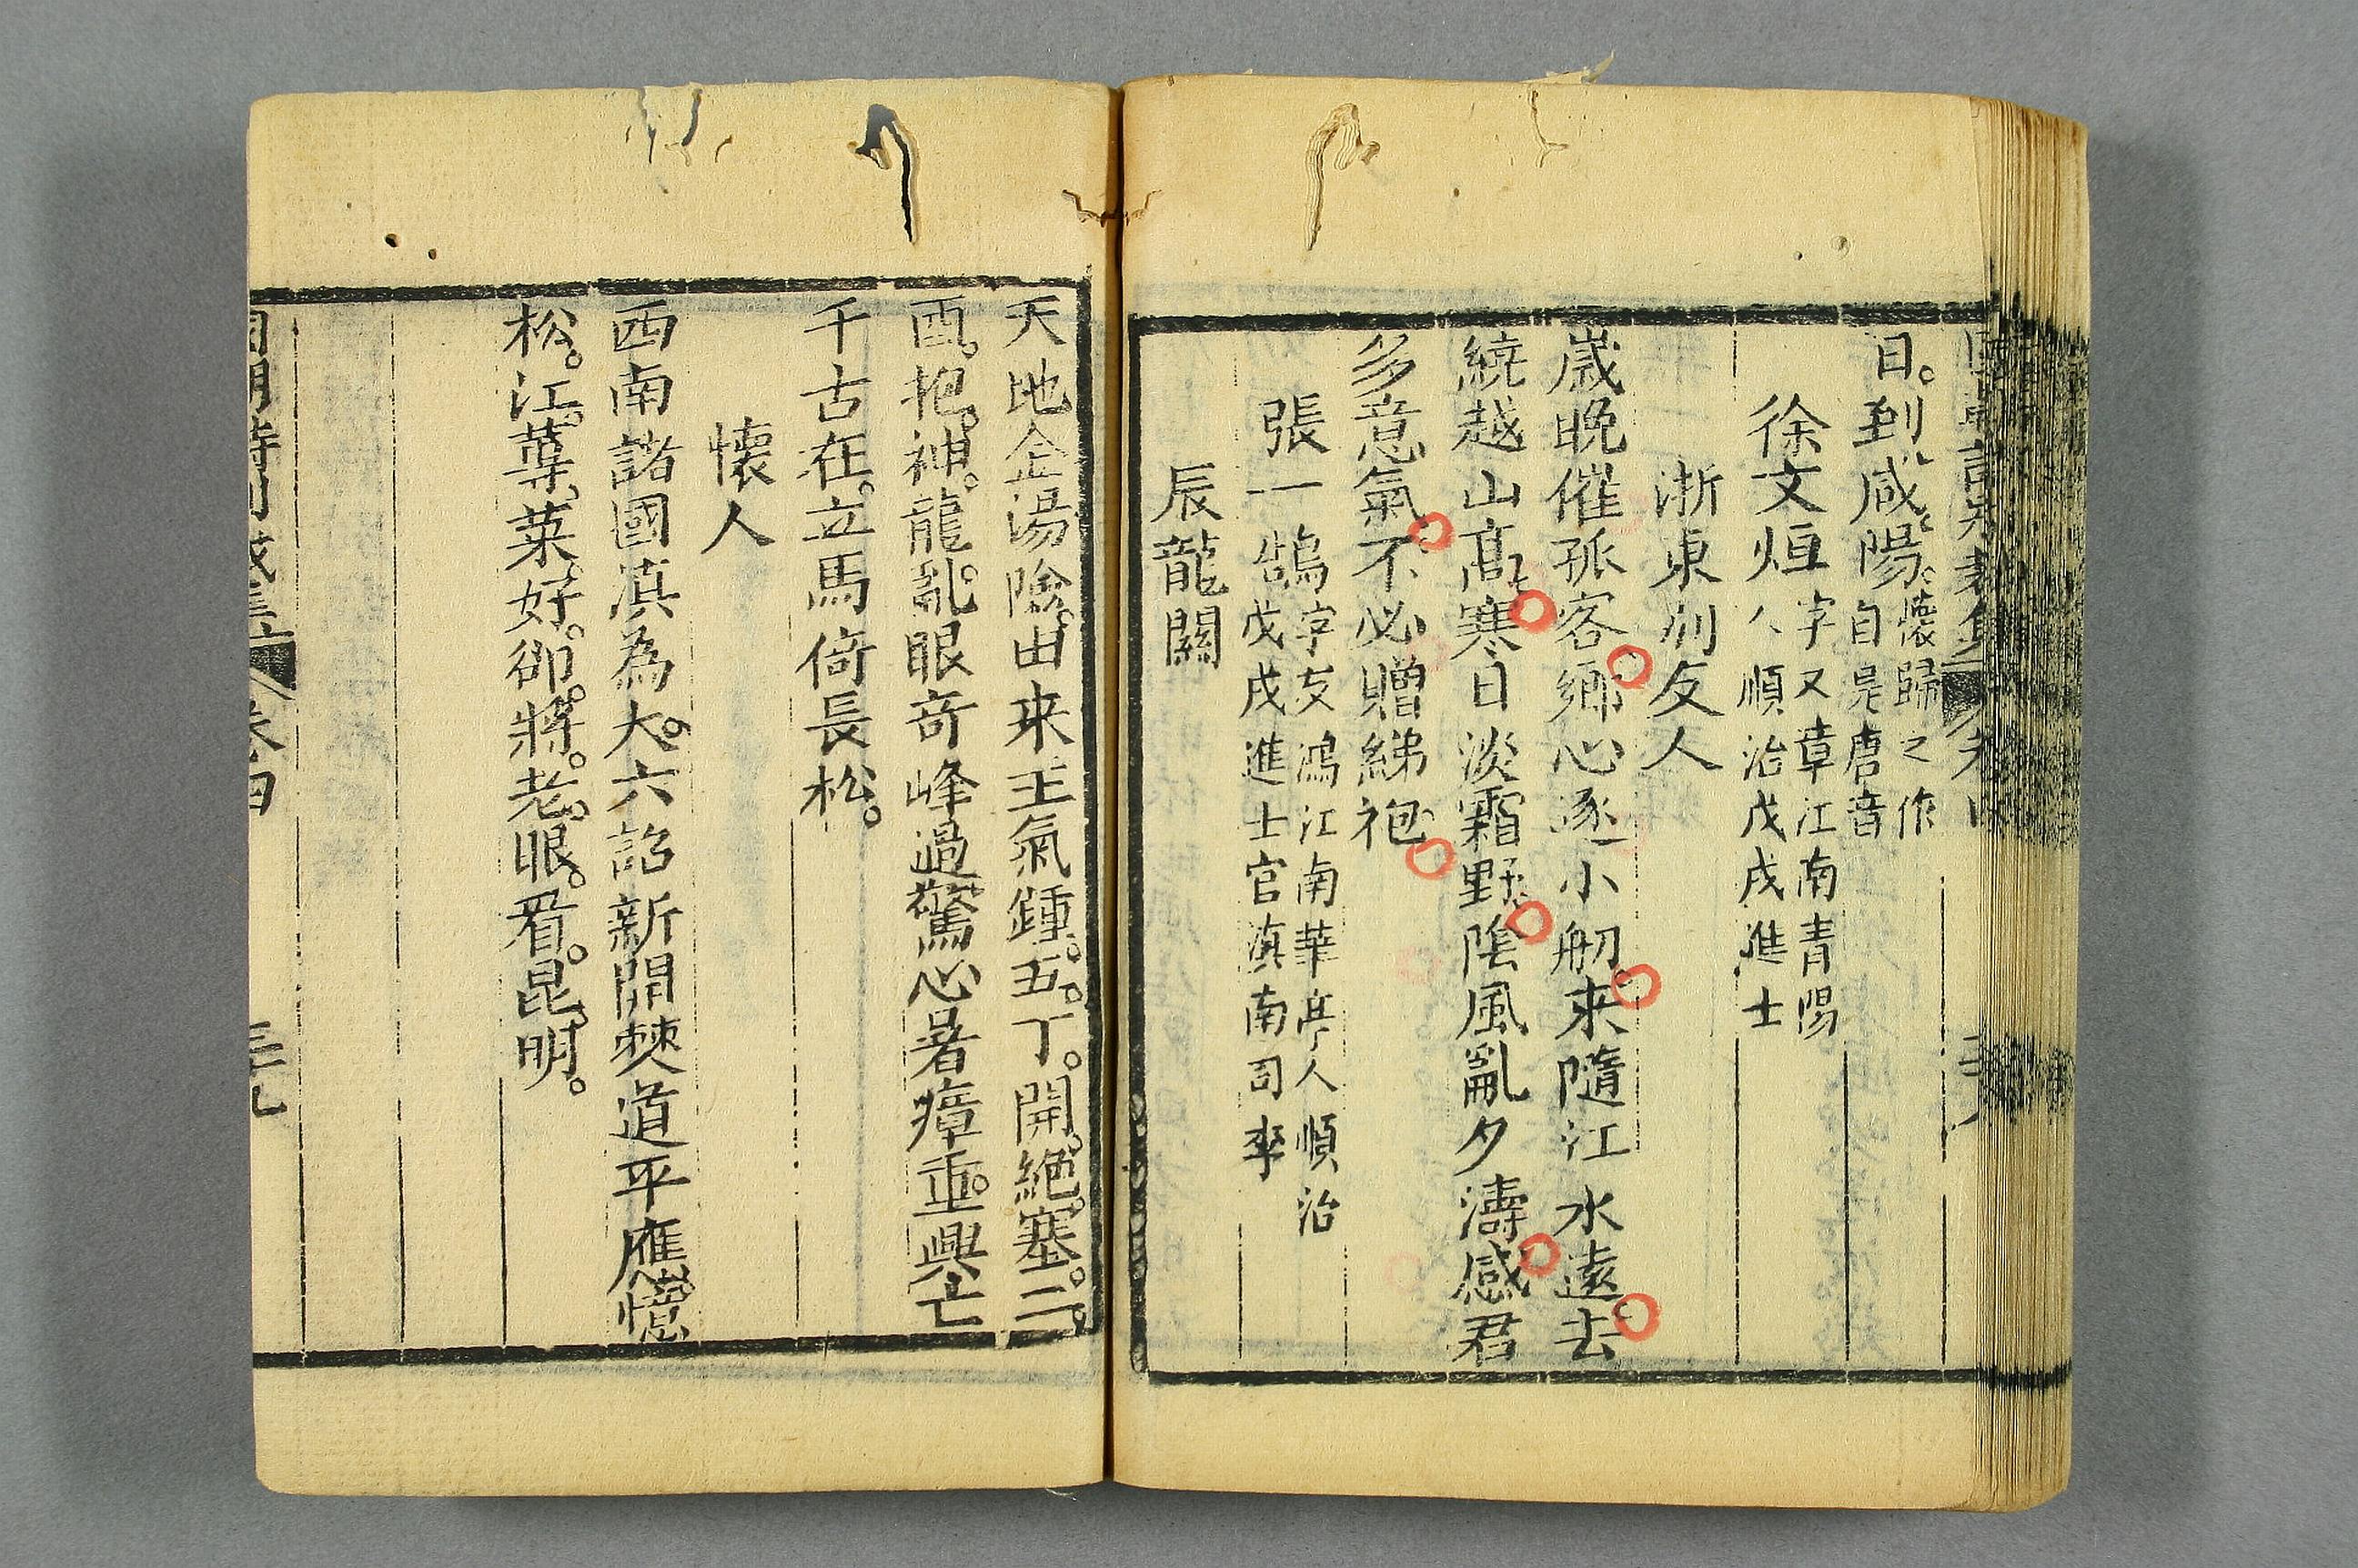 日。到咸陽。懷歸之作
自是唐音
徐文烜字又章江南青陽
人順治戊戌進士
浙東別友人
歲晚催孤客鄉心逐小舠來隨江水遠去
繞越山高寒日淡霜野陰風亂夕濤感君
多意氣不必贈綈袍
張一鵠字友鴻江南華亭人順治
戊戌進士官滇南司李
辰龍關
天地金湯險。由来王氣鍾。五。丁。開。絶。塞。二。
酉。抱。神。龍。亂。眼奇峰過驚心暑瘴重。興亡
千古在。立馬倚長松。
懷人
西南諸國滇為大。六詔新開僰道平應憶
松。江。蓴。菜。好。卻。將。老。眼。看。昆。明。
卷四
三九